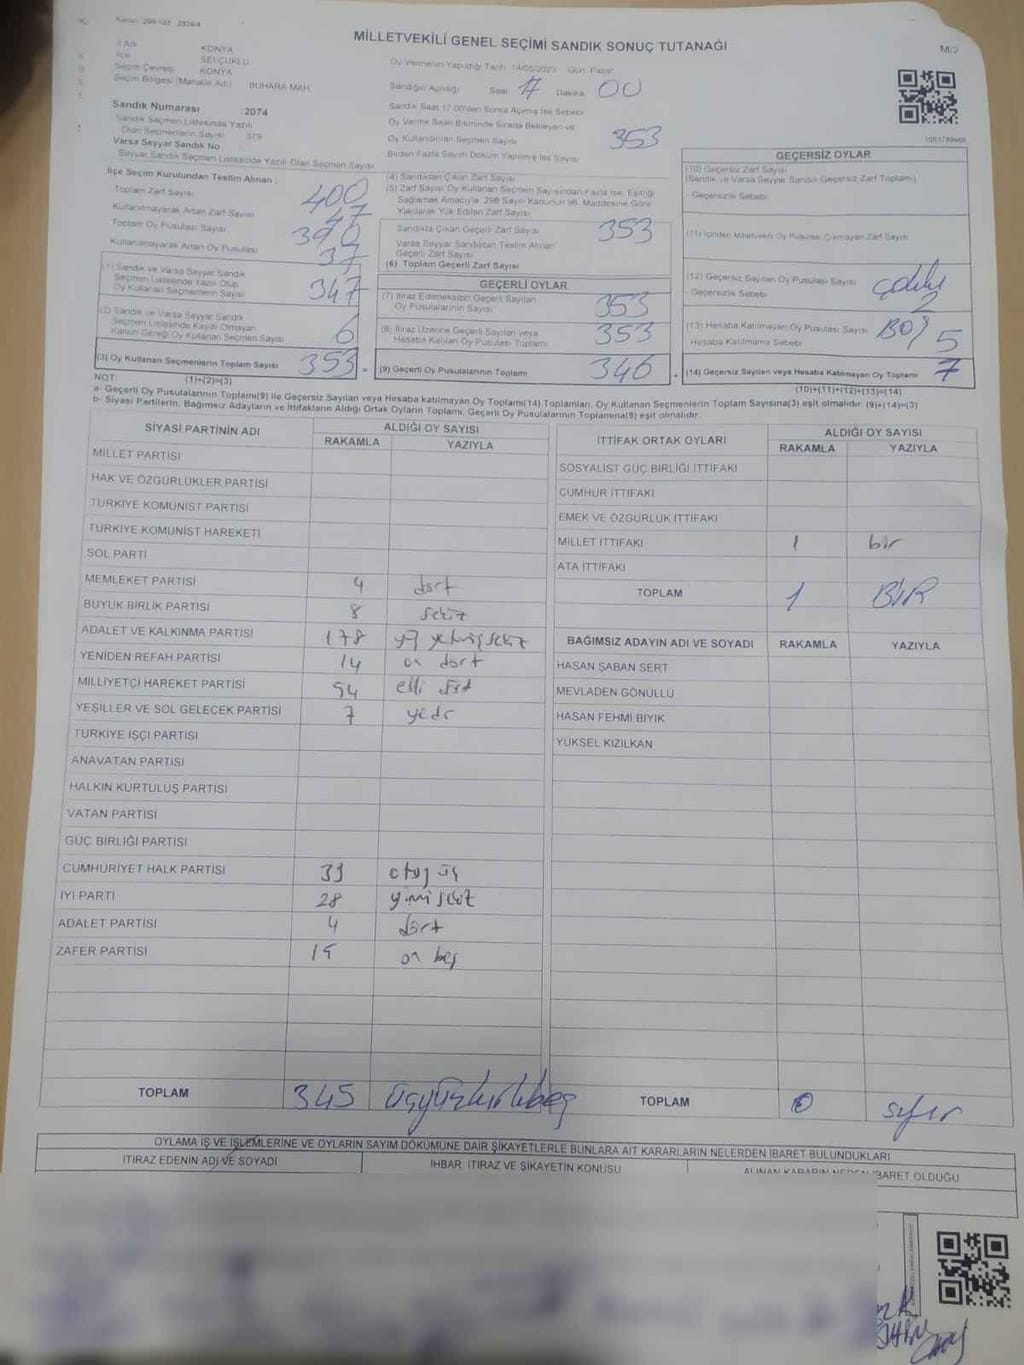 Kanun: 298/103 2839/4
MİLLETVEKİLİ GENEL SEÇİMİ SANDIK SONUÇ TUTANAĞI
M/2
İl Adı KONYA
İlçe SELÇUKLU
Seçim Çevresi KONYA
Seçim Bölgesi (Mahalle Adı) BUHARA MAH.
Sandık Numarası : 2074
Sandık Seçmen Listesinde Yazılı
Olan Seçmenlerin Sayısı 379
Varsa Seyyar Sandık No
Seyyar Sandık Seçmen Listesinde Yazılı Olan Seçmen Sayısı
Oy Vermenin Yapıldığı Tarih 14/05/2023 Gün: Pazar
Sandığın Açıldığı Saat 17 Dakika 00
Sandık Saat 17:00'den Sonra Açılmış İse Sebebi
Oy Verme Saati Bitiminde Sırada Bekleyen ve
Oy Kullandırılan Seçmen Sayısı 353
Birden Fazla Sayım Döküm Yapılmış İse Sayısı
İlçe Seçim Kurulundan Teslim Alınan :
Toplam Zarf Sayısı 400
Kullanılmayarak Artan Zarf Sayısı 47
Toplam Oy Pusulası Sayısı 390
Kullanılmayarak Artan Oy Pusulası 37
(1) Sandık ve Varsa Seyyar Sandık
Seçmen Listesinde Yazılı Olup
Oy Kullanan Seçmenlerin Sayısı 347
(2) Sandık ve Varsa Seyyar Sandık
Seçmen Listesinde Kaydı Olmayan
Kanun Gereği Oy Kullanan Seçmen Sayısı 6
(3) Oy Kullanan Seçmenlerin Toplam Sayısı 353 =
(4) Sandıktan Çıkan Zarf Sayısı
(5) Zarf Sayısı Oy Kullanan Seçmen Sayısından Fazla İse, Eşitliği
Sağlamak Amacıyla, 298 Sayılı Kanunun 98. Maddesine Göre
Yakılarak Yok Edilen Zarf Sayısı
Sandıkta Çıkan Geçerli Zarf Sayısı 353
Varsa Seyyar Sandıktan Teslim Alınan
Geçerli Zarf Sayısı
(6) Toplam Geçerli Zarf Sayısı
GEÇERLİ OYLAR
(7) İtiraz Edilmeksizin Geçerli Sayılan
Oy Pusulalarının Sayısı 353
(8) İtiraz Üzerine Geçerli Sayılan veya
Hesaba Katılan Oy Pusulası Toplamı 353
(9) Geçerli Oy Pusulalarının Toplamı 346 +
GEÇERSİZ OYLAR
(10) Geçersiz Zarf Sayısı
(Sandık ve Varsa Seyyar Sandık Geçersiz Zarf Toplamı)
Geçersizlik Sebebi
(11) İçinden Milletvekili Oy Pusulası Çıkmayan Zarf Sayısı
(12) Geçersiz Sayılan Oy Pusulası Sayısı
Geçersizlik Sebebi 2
(13) Hesaba Katılmayan Oy Pusulası Sayısı Boş 5
Hesaba Katılmama Sebebi
(14) Geçersiz Sayılan veya Hesaba Katılmayan Oy Toplamı 7
NOT: (1)+(2)=(3)
(10)+(11)+(12)+(13)=(14)
a- Geçerli Oy Pusulalarının Toplamı(9) ile Geçersiz Sayılan veya Hesaba katılmayan Oy Pusulaları Toplamı(14) Toplamları, Oy Kullanan Seçmenlerin Toplam Sayısına(3) eşit olmalıdır. (9)+(14)=(3)
b- Siyasi Partilerin, Bağımsız Adayların ve İttifakların Aldığı Ortak Oyların Toplamı, Geçerli Oy Pusulalarının Toplamına(9) eşit olmalıdır.
SİYASİ PARTİNİN ADI ALDIĞI OY SAYISI
RAKAMLA YAZIYLA
MİLLET PARTİSİ
HAK VE ÖZGÜRLÜKLER PARTİSİ
TÜRKİYE KOMÜNİST PARTİSİ
TÜRKİYE KOMÜNİST HAREKETİ
SOL PARTİ
MEMLEKET PARTİSİ 4 dört
BÜYÜK BİRLİK PARTİSİ 8 sekiz
ADALET VE KALKINMA PARTİSİ 178 yüz yetmiş sekiz
YENİDEN REFAH PARTİSİ 14 on dört
MİLLİYETÇİ HAREKET PARTİSİ 54 elli dört
YEŞİLLER VE SOL GELECEK PARTİSİ 7 yedi
TÜRKİYE İŞÇİ PARTİSİ
ANAVATAN PARTİSİ
HALKIN KURTULUŞ PARTİSİ
VATAN PARTİSİ
GÜÇ BİRLİĞİ PARTİSİ
CUMHURİYET HALK PARTİSİ 33 otuz üç
İYİ PARTİ 28 yirmi sekiz
ADALET PARTİSİ 4 dört
ZAFER PARTİSİ 15 on beş
TOPLAM 345 üçyüzkırkbeş
İTTİFAK ORTAK OYLARI ALDIĞI OY SAYISI
RAKAMLA YAZIYLA
SOSYALİST GÜÇ BİRLİĞİ İTTİFAKI
CUMHUR İTTİFAKI
EMEK VE ÖZGÜRLÜK İTTİFAKI
MİLLET İTTİFAKI 1 bir
ATA İTTİFAKI
TOPLAM 1 BİR
BAĞIMSIZ ADAYIN ADI VE SOYADI RAKAMLA YAZIYLA
HASAN ŞABAN SERT
MEVLADEN GÖNÜLLÜ
HASAN FEHMİ BIYIK
YÜKSEL KIZILKAN
TOPLAM 0 sıfır
OYLAMA İŞ VE İŞLEMLERİNE VE OYLARIN SAYIM DÖKÜMÜNE DAİR ŞİKAYETLERLE BUNLARA AİT KARARLARIN NELERDEN İBARET BULUNDUKLARI
İTİRAZ EDENİN ADI VE SOYADI İHBAR, İTİRAZ VE ŞİKAYETİN KONUSU ALINAN KARARIN NEDEN İBARET OLDUĞU